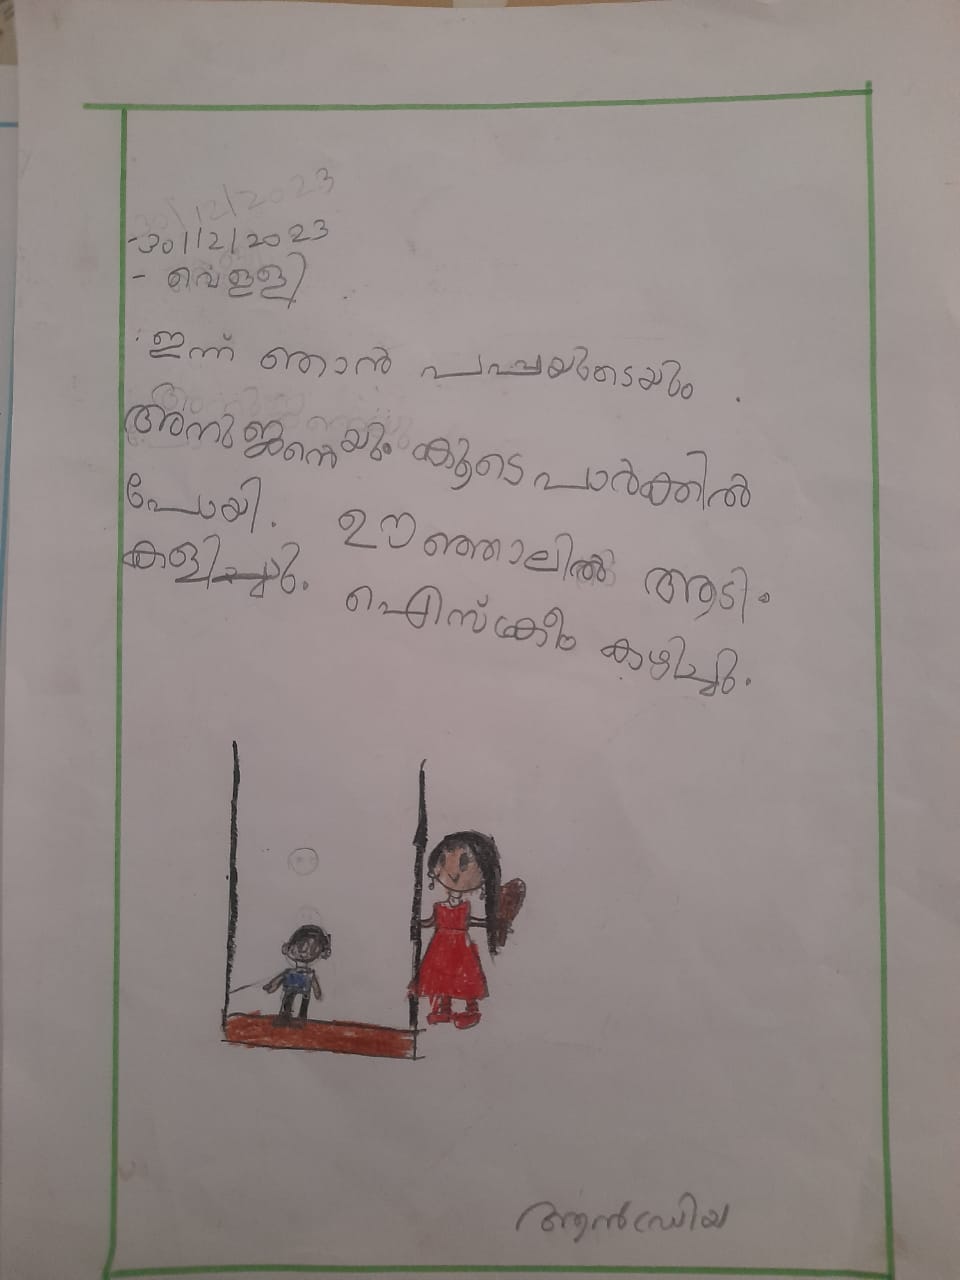 30/12/2023
-30/12/2023
- വെള്ളി
ഇന്ന് ഞാൻ പപ്പയുടെയും
അനുജന്റെയും കൂടെ പാർക്കിൽ
പോയി. ഊഞ്ഞാലിൽ ആടി.
കളിച്ചു. ഐസ്ക്രീം കഴിച്ചു.
ആൻഡ്രിയ